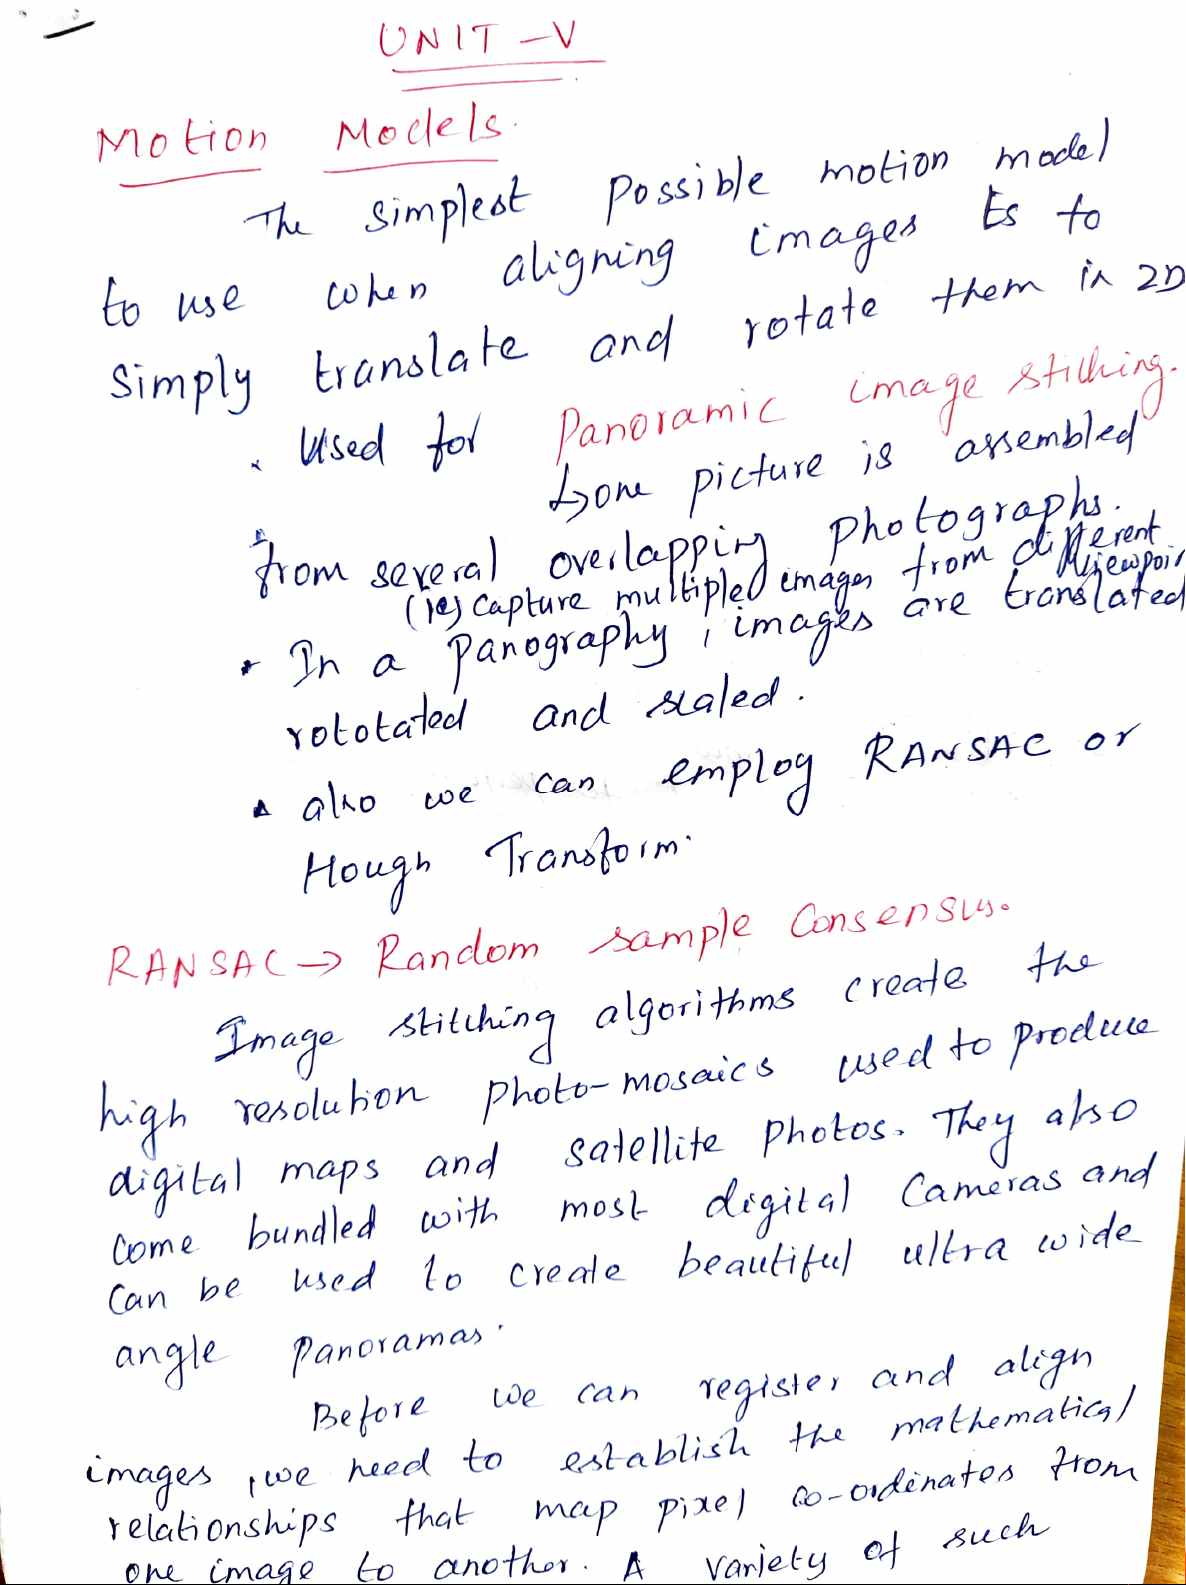 UNIT - V
Motion Models.
The simplest possible motion model
to use when aligning images is to
simply translate and rotate them in 2D
Used for Panoramic image stitching.
↳ one picture is assembled
from several overlapping photographs.
(ie) capture multiple images from different viewpoin
In a panography, images are translated
rototated and scaled.
also we can employ RANSAC or
Hough Transform.
RANSAC → Random sample Consensus.
Image stitching algorithms create the
high resolution photo-mosaics used to produce
digital maps and satellite photos. They also
come bundled with most digital Cameras and
can be used to create beautiful ultra wide
angle panoramas.
Before we can register and align
images, we need to establish the mathematical
relationships that map pixel co-ordinates from
one image to another. A variety of such